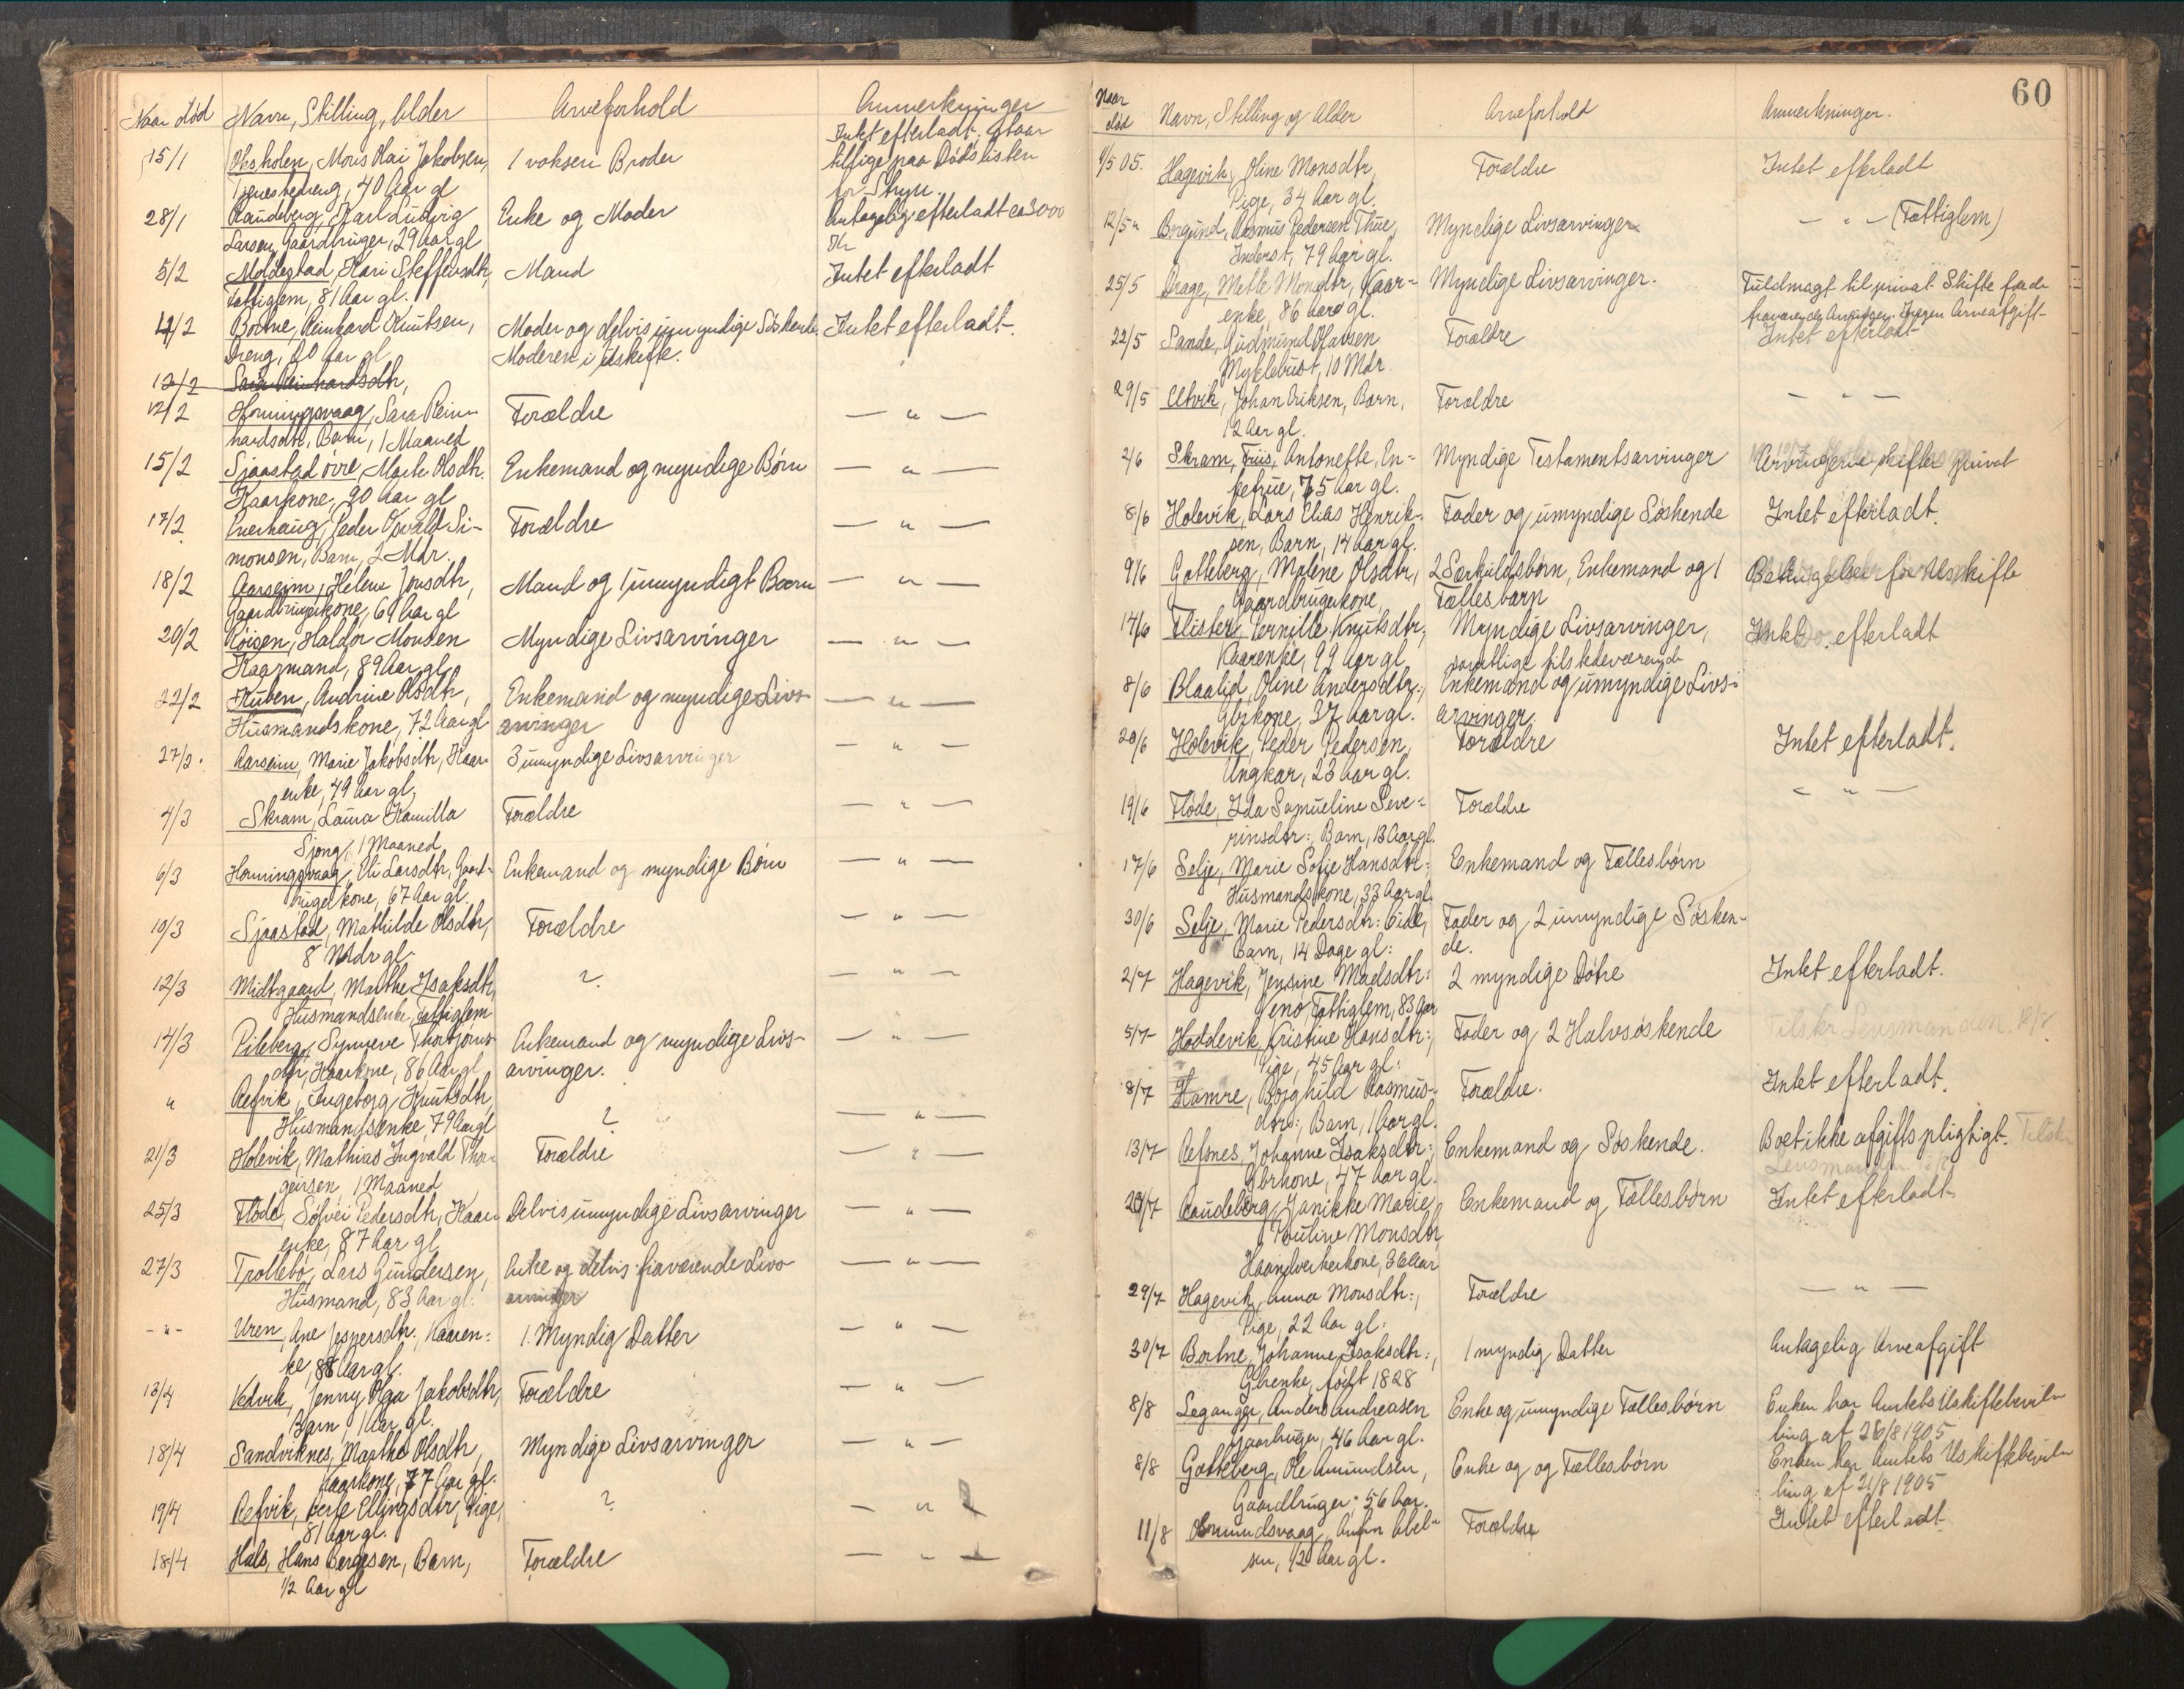 Naar død Navn, Stilling, Alder Arveforhold Anmerkninger
15/1 Oksholen, Mons Olai Jakobsen, 1 voksen Broder Intet efterladt. Staar tillige paa Dødslisten for Stryn.
Tjenestedreng, 40 Aar gl
28/1 Raudeberg, Karl Ludvig Enke og Moder Antagelig efterladt ca 3000 Kr
Larsen, Gaardbruger, 29 Aar gl
5/2 Moldestad, Kari Steffensdtr, Mand Intet efterladt
Fattiglem, 81 Aar gl.
4/2 Bortne, Reinhard Knutsen, Moder og delvis umyndige Søskende. Intet efterladt.
Dreng, 20 Aar gl Moderen i Uskifte.
12/2 Sara Reinhardsdtr,
12/2 Honningsvaag, Sara Rein- Forældre — " —
hardsdtr, Barn, 1 Maaned
15/2 Sjaastad øvre, Marte Olsdtr. Enkemand og myndige Børn — " —
Kaarkone, 90 Aar gl
17/2 Everhaug, Peder Osvald Si- Forældre — " —
monsen, Barn, 2 Mdr.
18/2 Aarseim, Helene Jonsdtr, Mand og 1 umyndigt Barn — " —
Gaardbrugerkone, 69 Aar gl
20/2 Røisen, Haldor Monsen Myndige Livsarvinger — " —
Kaarmand, 89 Aar gl
22/2 Kuben, Andrine Olsdtr, Enkemand og myndige Livs- — " —
Husmandskone, 72 Aar gl arvinger
27/2. Aarseim, Marie Jakobsdtr, Kaar- 3 umyndige Livsarvinger — " —
enke, 49 Aar gl.
4/3 Skram, Laura Kamilla Forældre — " —
Sjong, 1 Maaned
6/3 Honningsvaag, Eli Larsdtr, Gaard- Enkemand og myndige Børn — " —
brugerkone, 67 Aar gl.
10/3 Sjaastad, Mathilde Olsdtr, Forældre — " —
8 Mdr gl.
12/3 Midtgaard, Marthe Isaksdtr, ? — " —
Husmandsenke, Fattiglem
14/3 Pileberg, Synneve Thorbjørns- Enkemand og myndige Livs- — " —
dtr, Kaarkone, 86 Aar gl arvinger.
" Refvik, Ingeborg Knutsdtr, ? — " —
Husmandsenke, 79 Aar gl
21/3 Holevik, Mathias Ingvald Thor- Forældre — " —
geirsen, 1 Maaned
25/3 Fløde, Sølvei Pedersdtr, Kaar- Delvis umyndige Livsarvinger — " —
enke, 87 Aar gl
27/3 Trollebø, Lars Gundersen, Enke og delvis fraværende Livs- — " —
Husmand, 83 Aar gl. arvinger
- " - Uren, Ane Jespersdtr. Kaaren- 1. Myndig Datter — " —
ke, 88 Aar gl.
13/4 Vedvik, Jenny Olga Jakobsdtr, Forældre — " —
Barn, 1 Aar gl.
18/4 Sandviknes, Marthe Olsdtr, Myndige Livsarvinger — " —
Kaarkone, 77 Aar gl.
19/4 Refvik, Berte Ellingsdtr, Pige, ? — " —
81 Aar gl.
18/4 Hals, Hans Børgesen, Barn, Forældre — " —
1/2 Aar gl
60
Naar død Navn, Stilling og Alder Arveforhold Anmerkninger.
9/5 05. Hagevik, Oline Monsdtr, Forældre Intet efterladt
Pige, 34 Aar gl.
12/5 " Borgund, Rasmus Pedersen Thue, Myndige Livsarvinger — " — (Fattiglem)
Inderst, 79 Aar gl.
25/5 Drage, Mette Monsdtr, Kaar- Myndige Livsarvinger. Fuldmagt til privat Skifte fra de
enke, 86 Aar gl. fraværende Arvinger. Ingen Arveafgift
22/5 Sande, Gudmund Olavsen Forældre Intet efterladt
Myklebust, 10 Mdr.
29/5 Elvik, Johan Eriksen, Barn, Forældre — " —
12 Aar gl.
2/6 Skram, Friis, Antonette, En- Myndige Testamentsarvinger Arvingerne skifter privat
kefrue, 75 Aar gl.
8/6 Holevik, Lars Elias Henrik- Fader og umyndige Søskende Intet efterladt.
sen, Barn, 14 Aar gl.
9/6 Gotteberg, Malene Olsdtr, 2 Særkuldsbørn, Enkemand og 1 Betingelser for Uskifte
Gaardbrugerkone, Fællesbarn
14/6 Flister, Pernille Knutsdtr, Myndige Livsarvinger, Intet efterladt
Kaarenke, 99 Aar gl samtlige tilstedeværende
8/6 Blaalid, Oline Andersdtr, Enkemand og umyndige Livs-
Gbrkone, 37 Aar gl. arvinger.
20/6 Holevik, Peder Pedersen, Forældre Intet efterladt.
Ungkar, 23 Aar gl.
19/6 Fløde, Ida Samueline Seve- Forældre — " —
rinsdtr: Barn, 13 Aar gl.
17/6 Selje, Marie Sofie Hansdtr: Enkemand og Fællesbørn
Husmandskone, 33 Aar gl.
30/6 Selje, Marie Pedersdtr: Eide, Fader og 2 umyndige Søsken-
Barn, 14 Dage gl: de.
2/7 Hagevik, Jensine Madsdtr: 2 myndige Døtre Intet efterladt.
Fattiglem, 83 Aar
5/7 Hoddevik, Kristine Hansdtr:, Fader og 2 Halvsøskende Tilskr. Lensmanden 12/7
Pige, 45 Aar gl:
8/7 Hamre, Borghild Rasmus- Forældre. Intet efterladt.
dtr:, Barn, 1 Aar gl.
13/7 Refsnes, Johanne Isaksdtr:, Enkemand og Søskende. Boet ikke afgiftspligtigt. Tilskr.
Gbrkone, 47 Aar gl. Lensmanden
20/7 Raudeberg, Janikke Marie Enkemand og Fællesbørn Intet efterladt
Pauline Monsdtr,
Haandverkerkone, 36 Aar
29/7 Hagevik, Anna Monsdtr:, Forældre — " —
Pige, 22 Aar gl.
30/7 Bortne, Johanne Isaksdtr:, 1 myndig Datter Antagelig Arveafgift
Gbrenke, født 1828
8/8 Leganger, Anders Andreasen Enke og umyndige Fællesbørn Enken har Amtets Uskiftebevil-
Gaardbruger, 46 Aar gl. ling af 26/8 1905
8/8 Gotteberg, Ole Amundsen, Enke og og Fællesbørn Enken har Amtets Uskiftebevil-
Gaardbruger, 56 Aar. ling af 21/8 1905
11/8 Osmundsvaag, Anton Abel- Forældre Intet efterladt
sen, 1/2 Aar gl.